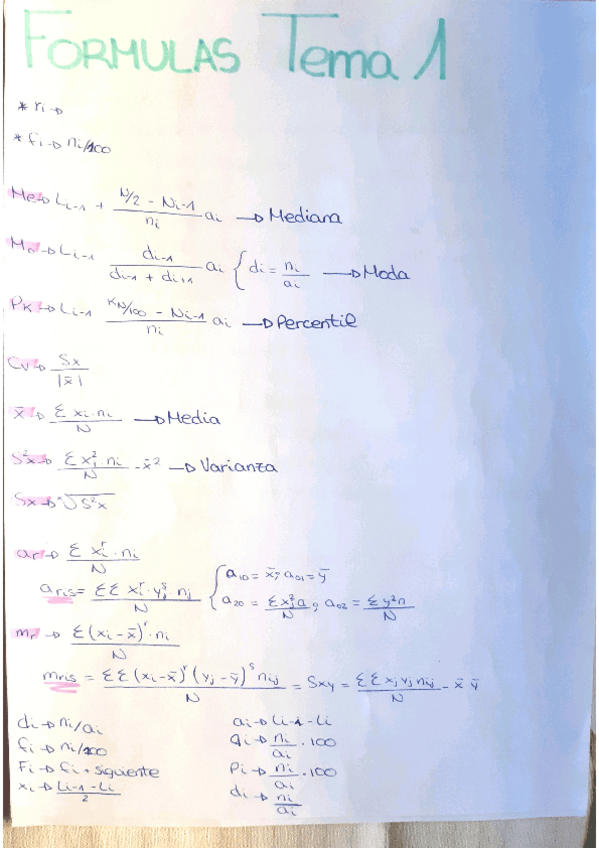 FORMULAS Tema 1
* ri →
* fi → ni/100
Me → Li-1 + (N/2 - Ni-1)/ni ai → Mediana
Mo → Li-1 di-1/(di-1 + di+1) ai { di = ni/ai → Moda
PK → Li-1 (KN/100 - Ni-1)/ni ai → Percentil
CV → Sx/|x̄|
x̄ → Σ xi·ni/N → Media
S²x → Σ xi²·ni/N - x̄² → Varianza
Sx → √S²x
ar → Σ xiʳ·ni/N
aris = ΣΣ xiʳ·yjˢ·nj/N { a10 = x̄; a01 = ȳ
a20 = Σx²a/N, a02 = Σy²n/N
mr → Σ(xi-x̄)ʳ·ni/N
mris = ΣΣ(xi-x̄)ʳ(yj-ȳ)ˢnij/N = Sxy = ΣΣxjyjnij/N - x̄ ȳ
di → ni/ai ai → Li-1-Li
fi → ni/100 qi → ni/ai · 100
Fi → fi + siguiente Pi → ni/ai · 100
xi → Li-1-Li/2 di → ni/ai